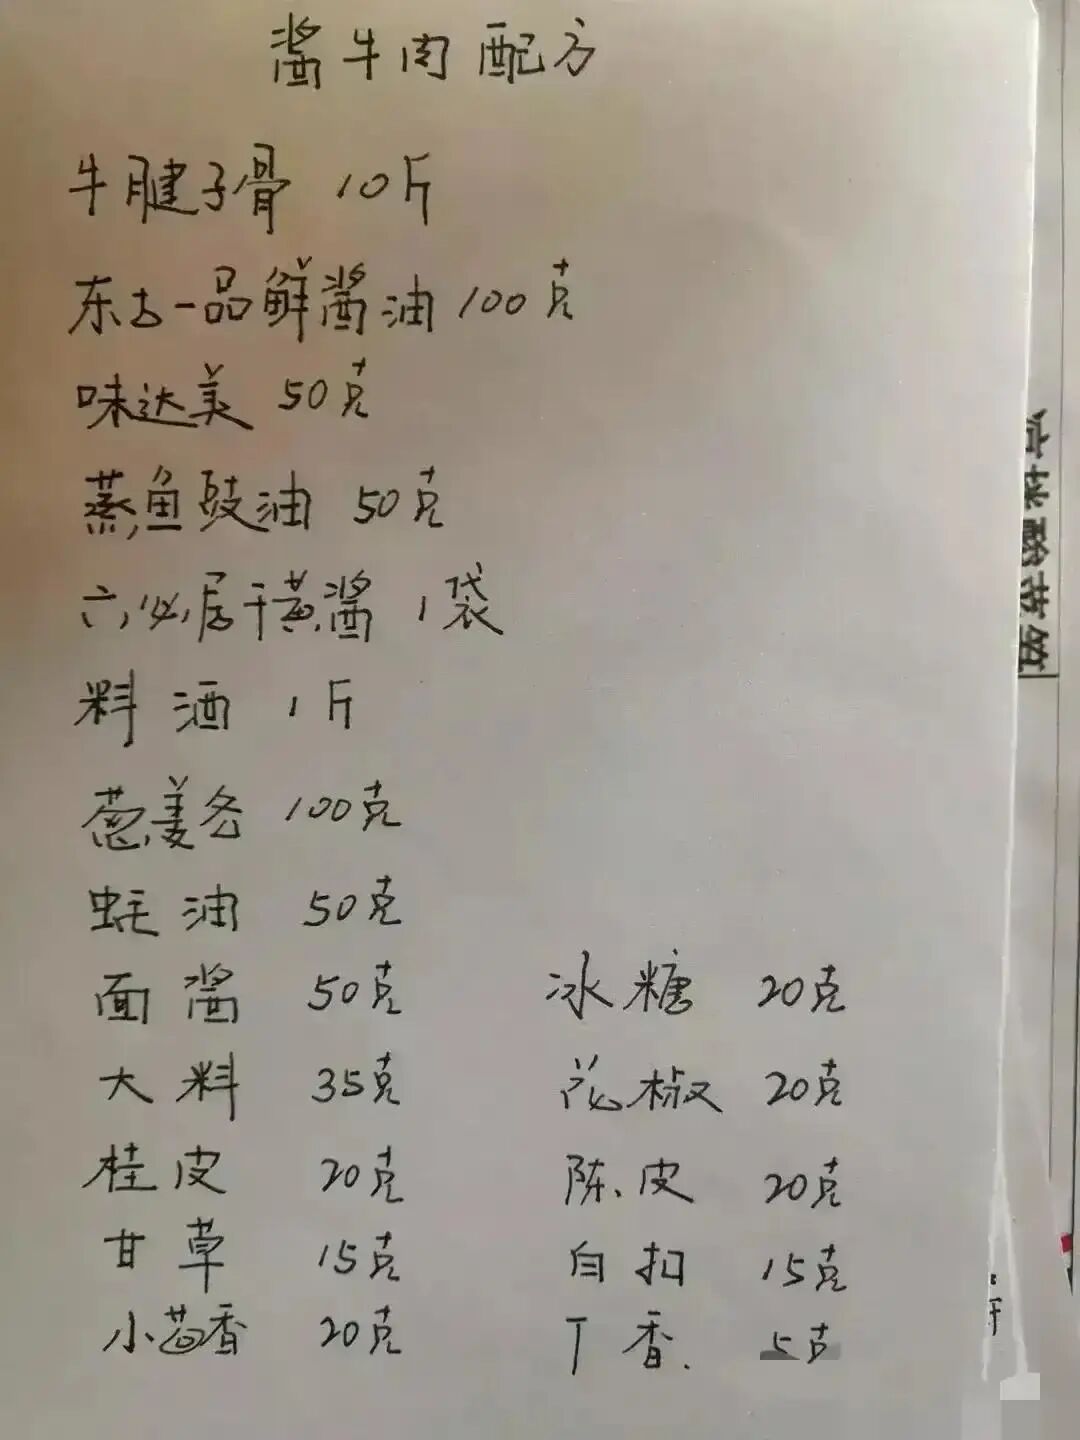 酱牛肉配方
牛腱子骨 10斤
东古一品鲜酱油 100克
味达美 50克
蒸鱼豉油 50克
六必居干黄酱 1袋
料酒 1斤
葱姜各 100克
蚝油 50克
面酱 50克 冰糖 20克
大料 35克 花椒 20克
桂皮 20克 陈皮 20克
甘草 15克 白扣 15克
小茴香 20克 丁香. 5克